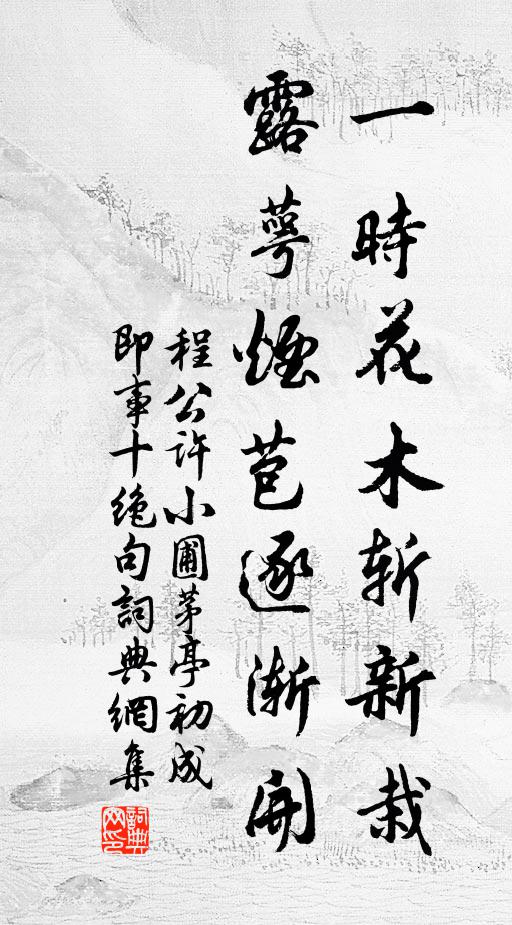 一時花木斬新栽
露萼煙苞逐漸開
程公許小圃茅亭初成
即事十絶句詞典網集
詞典
网印